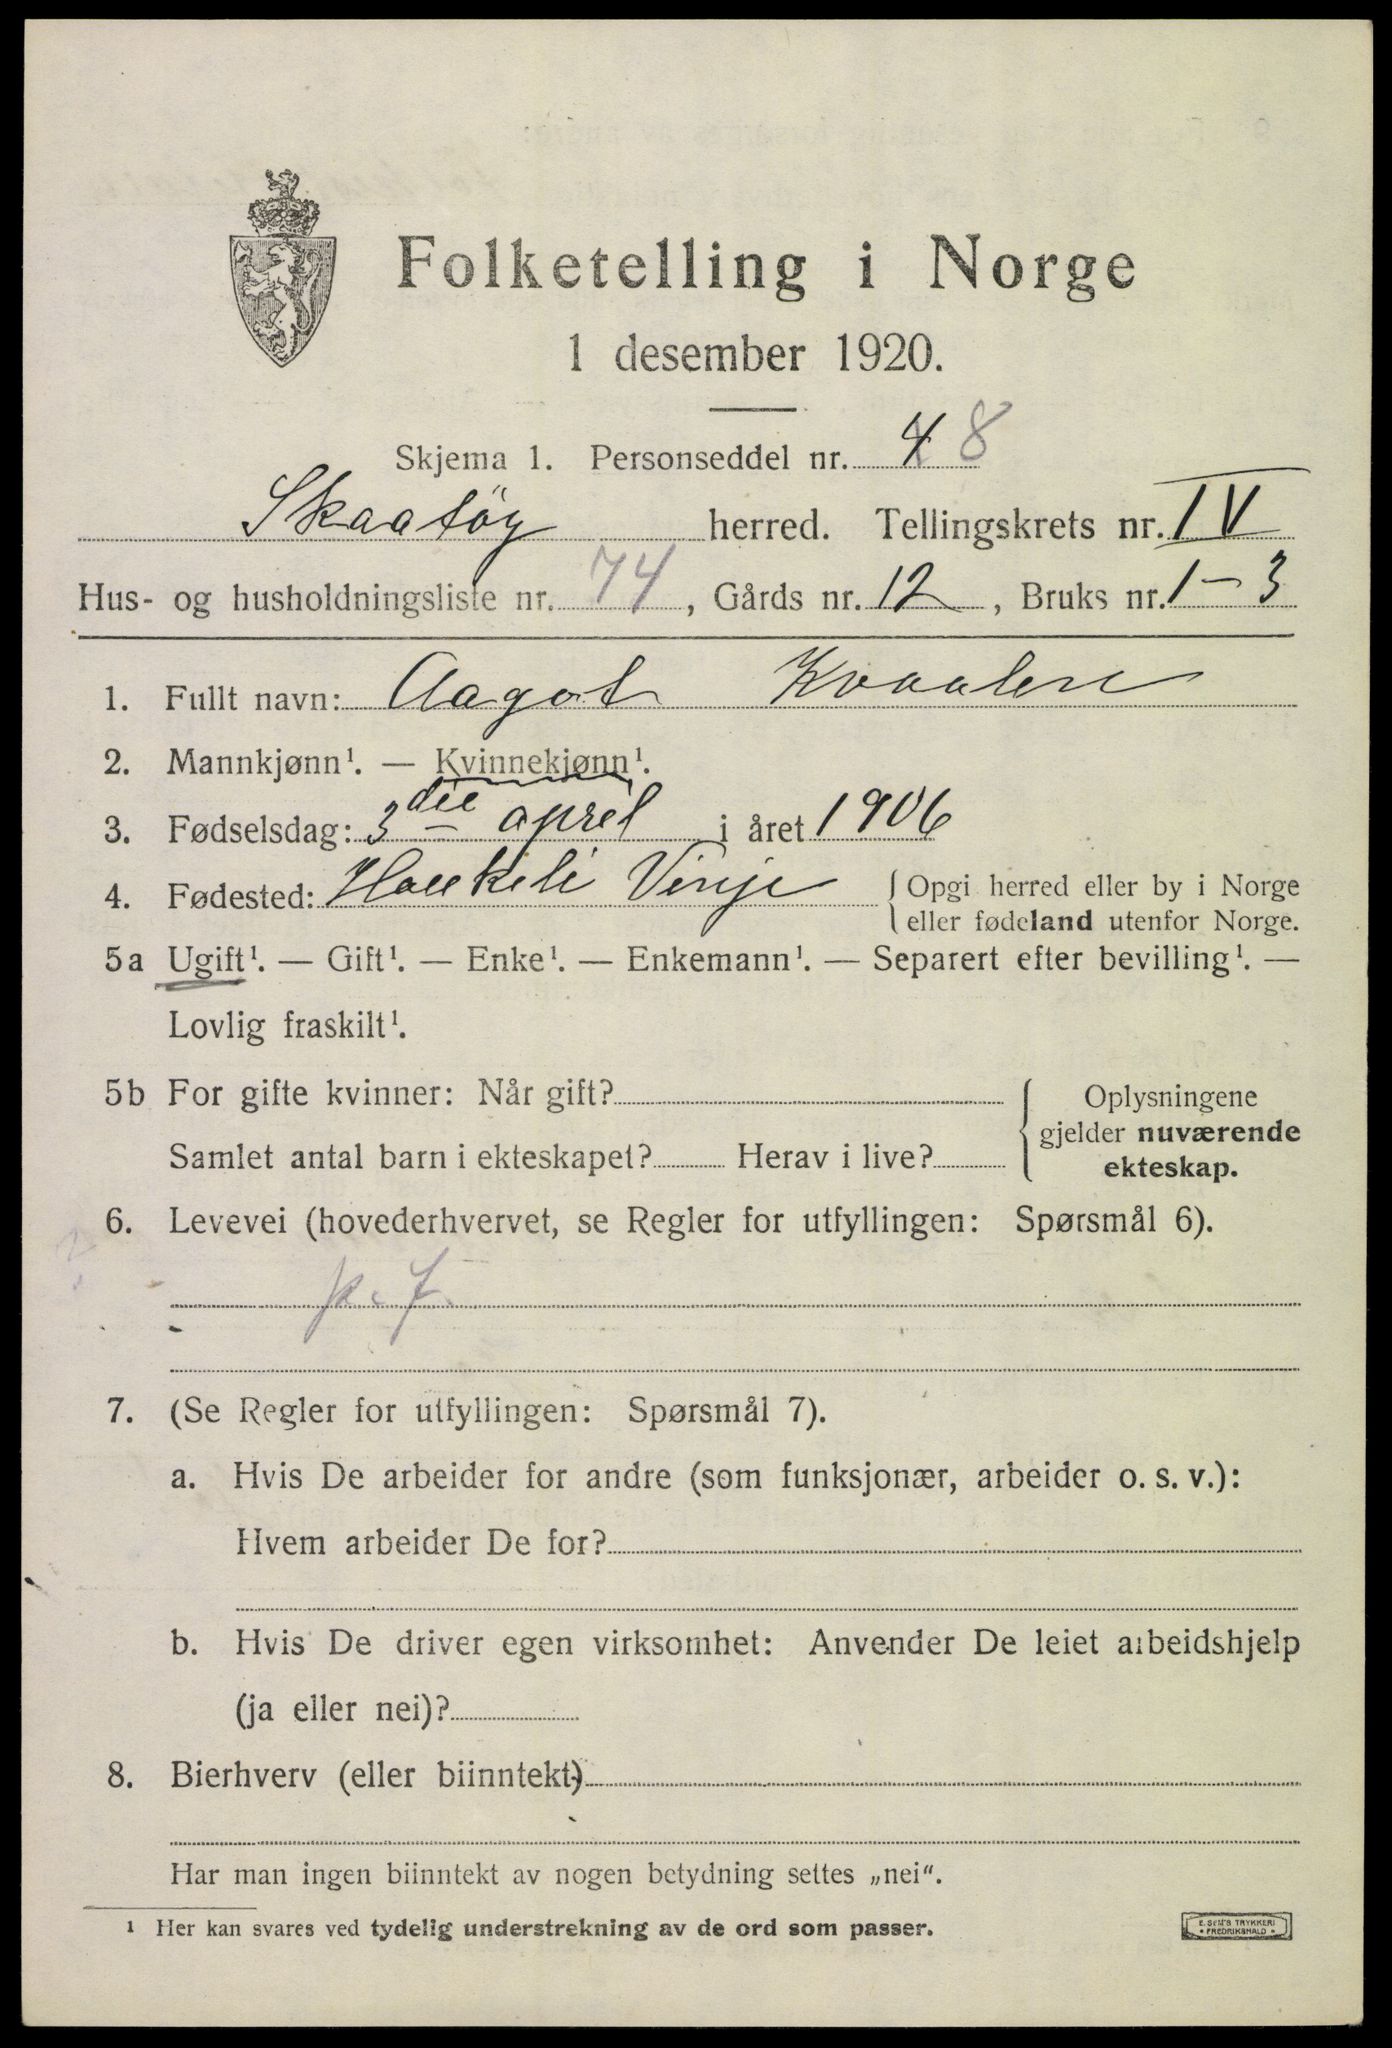 Folketelling i Norge
1 desember 1920.
Skjema 1. Personseddel nr. 4 8
Skaatöy herred. Tellingskrets nr. IV
Hus- og husholdningsliste nr. 74, Gårds nr. 12, Bruks nr. 1-3
1. Fullt navn: Aagot Kvaalen
2. Mannkjønn¹. — Kvinnekjønn¹.
3. Fødselsdag: 3die april i året 1906
4. Fødested: Haukeli Vinje { Opgi herred eller by i Norge
eller fødeland utenfor Norge.
5a Ugift¹. — Gift¹. — Enke¹. — Enkemann¹. — Separert efter bevilling¹. —
Lovlig fraskilt¹.
5b For gifte kvinner: Når gift?
Samlet antal barn i ekteskapet? Herav i live?
{ Oplysningene
gjelder nuværende
ekteskap.
6. Levevei (hovederhvervet, se Regler for utfyllingen: Spørsmål 6).
7. (Se Regler for utfyllingen: Spørsmål 7).
a. Hvis De arbeider for andre (som funksjonær, arbeider o. s. v.):
Hvem arbeider De for?
b. Hvis De driver egen virksomhet: Anvender De leiet arbeidshjelp
(ja eller nei)?
8. Bierhverv (eller biinntekt)
Har man ingen biinntekt av nogen betydning settes „nei“.
¹ Her kan svares ved tydelig understrekning av de ord som passer.
E. SEM'S TRYKKERI
• FREDRIKSHALD •